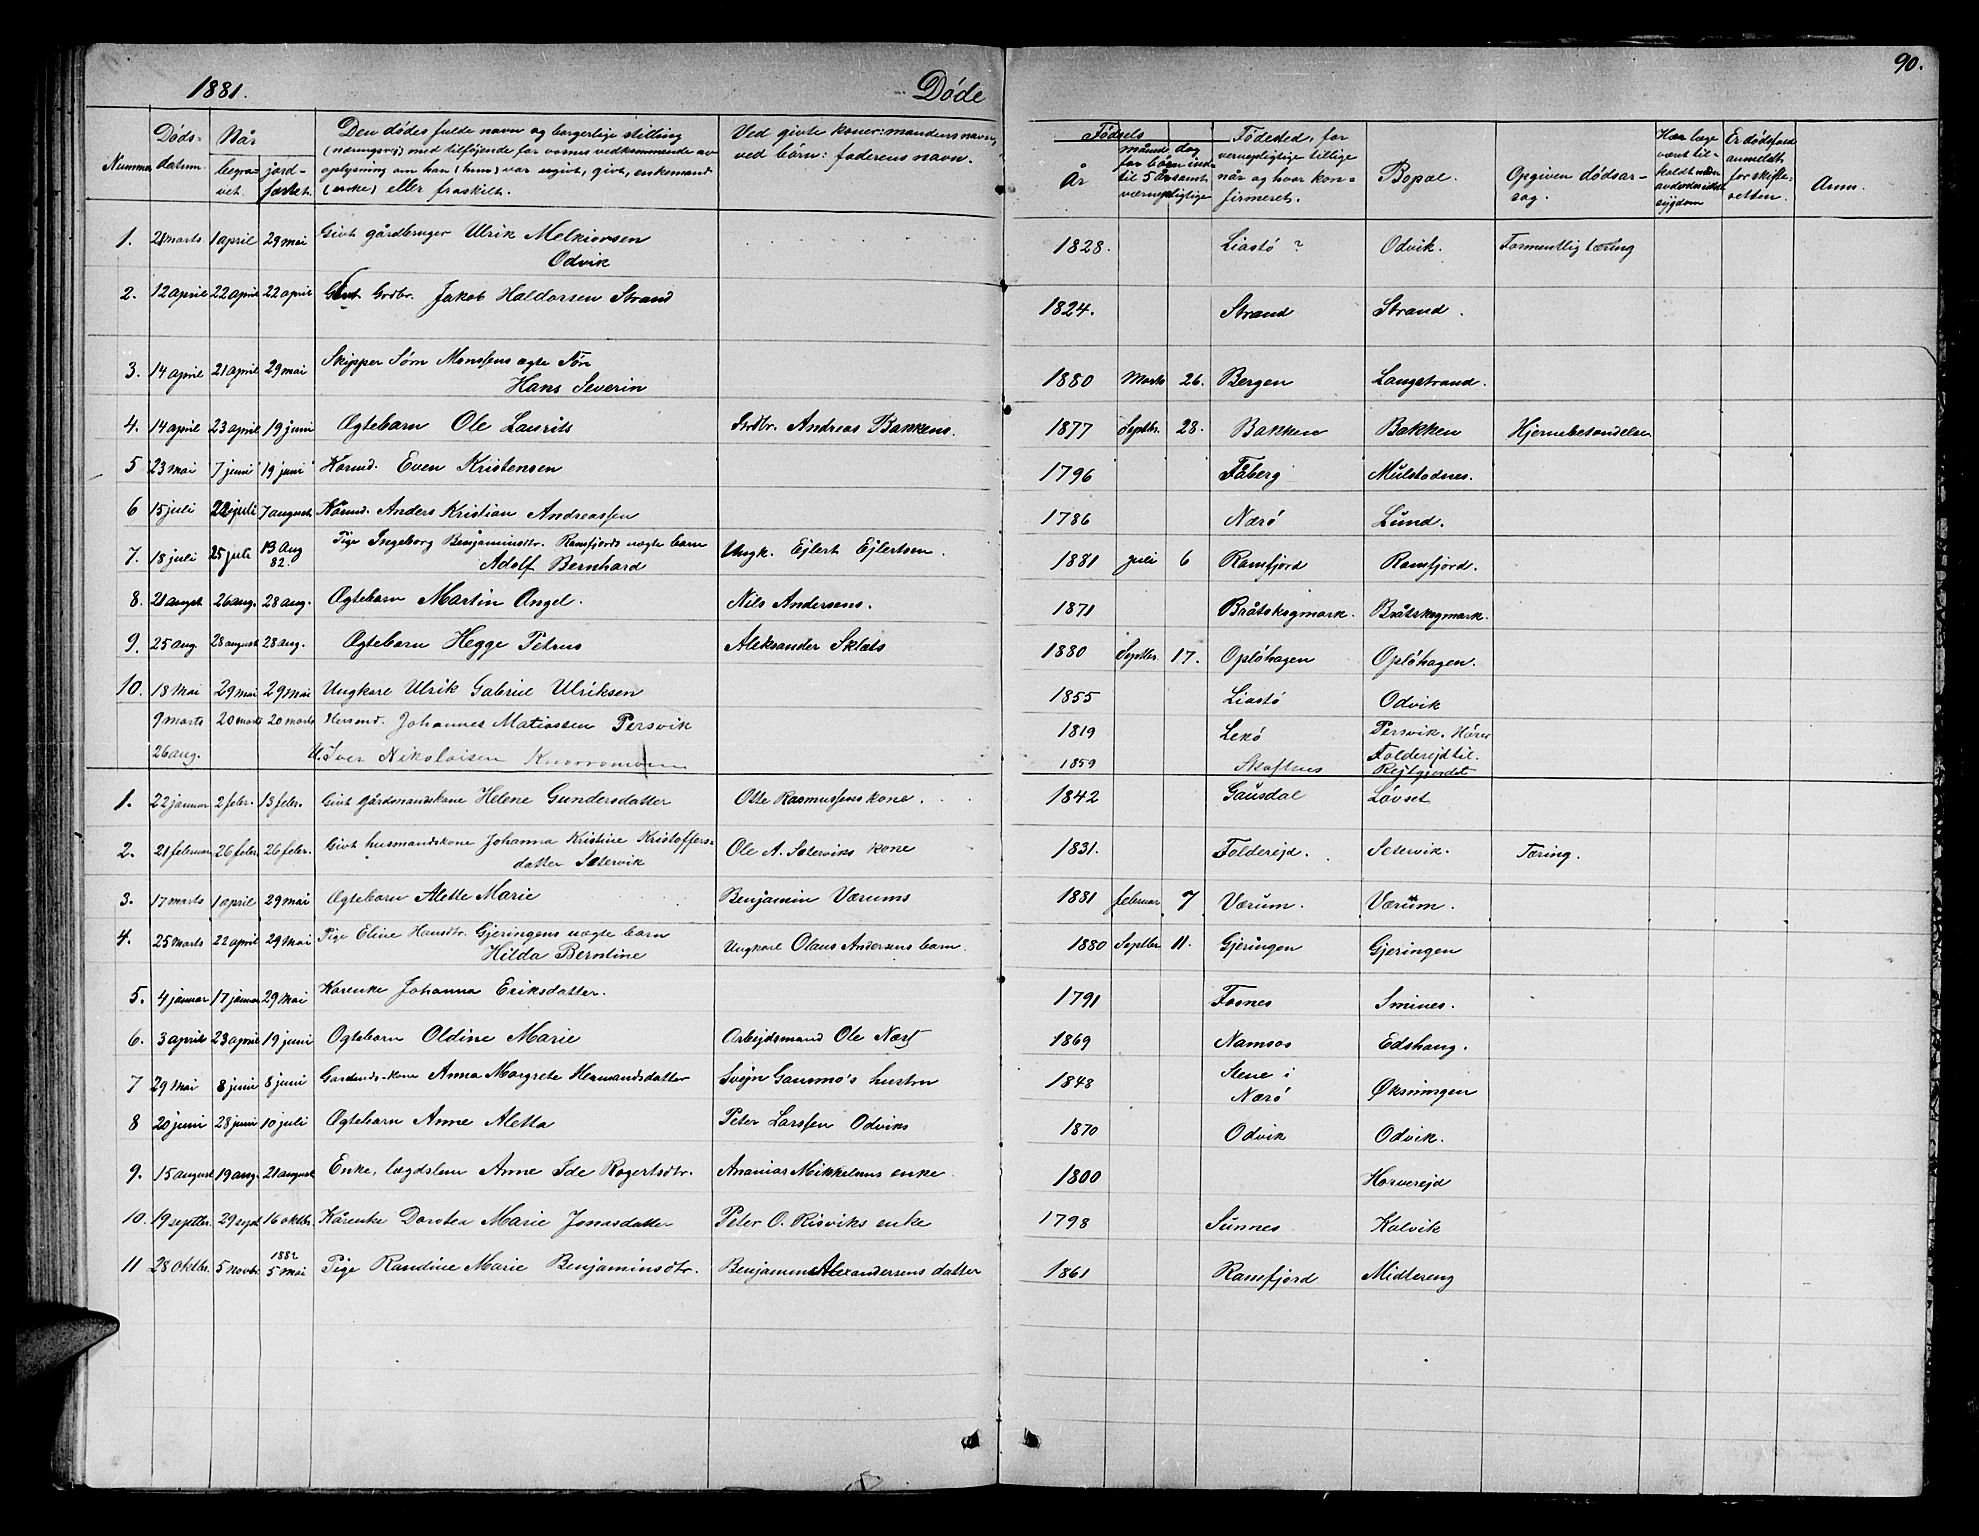 1881.
Døde
90.
Nummer
Døds-datum.
Når begravet.
jordfæstet.
Den dødes fulde navn og borgerlige stilling
(næringsvej) med tilføjende for voxnes vedkommende av
oplysning om han (hun) var ugivt, givt, enkemand
(enke) eller fraskilt.
Ved givte koner: mandens navn,
ved børn: faderens navn.
Fødsels
År
måned, dag for børn indtil 5 år samt værnepligtige
Fødested, for værnepligtige tillige når og hvor konfirmeret.
Bopæl.
Opgiven dødsarsag.
Har læge været tilkaldt
sygdom
Er dødsfald anmeldt for skifteretten.
Anm.
1. 21 marts 1 april 29 mai Givt gårdbruger Ulrik Melkiorsen Odvik 1828. Liastø ? Odvik. Formentlig tæring
2. 12 april 22 april 22 april Givt Grdbr. Jakob Haldorsen Strand 1824. Strand Strand.
3. 14 april 21 april 29 mai Skipper Sørn Monssens ægte Søn Hans Severin 1880 Marts 26. Bergen Langstrand.
4. 14 april 23 april 19 juni Ægtebarn Ole Laurits Grdbr. Andreas Bakkens. 1877 Septbr. 28. Bakken Bakken Hjernebetændelse
5 23 mai 7 juni 19 juni Kårmd. Even Kristensen 1796 Fåberg Mulstadnes.
6 15 juli 22 juli 7 august Kårmd. Anders Kristian Andreassen 1786 Nærø Lund.
7. 18 juli 25 juli 13 Aug 82. Pige Ingeborg Benjaminsdtr. Ramfjords uægte barn Adolf Bernhard Ungk. Ejlert Ejlertsen. 1881 juli 6 Ramfjord Ramfjord.
8. 21 august 26 aug. 28 aug. Ægtebarn Martin Angel. Nils Andersens. 1871 Bråtskogmark. Bråtskogmark.
9. 25 aug. 28 august 28 aug. Ægtebarn Hegge Petrus Aleksander Sklets 1880 Septbr. 17. Opløhagen Opløhagen.
10. 18 Mai 29 mai 29 mai Ungkarl Ulrik Gabriel Ulriksen 1855 Liastø Odvik
9 marts 20 marts 20 marts Husmd. Johannes Matiassen Persvik 1819 Lekø Persvik.
26 aug. U. Iver Nikolaisen 1859 Skaftnes Folderejd til.
1. 22 januar 2 febr. 13 febr. Givt gårdmandskone Helene Gundersdatter Otte Rasmussens kone. 1842 Gausdal Løvset
2. 21 februar 26 febr. 26 febr. Givt husmandskone Johanna Kristine Kristoffersdatter Setervik Ole A. Seterviks kone 1831. Folderejd. Setervik. Tæring.
3. 17 marts 1 april 29 mai Ægtebarn Alette Marie Benjamin Værums 1881 februar 7 Værum. Værum.
4. 25 marts 22 april 29 Mai Pige Eline Hansdtr. Gjeringens uægte barn Hilda Berntine Ungkarl Olaus Andersens barn. 1880 Septbr. 11. Gjeringen Gjeringen
5. 4 januar 17 januar 29 Mai Kårenke Johanna Eriksdatter. 1791 Fosnes Smines.
6. 3 april 23 april 19 juni Ægtebarn Oldine Marie Arbejdsmand Ole Næst 1869 Namsos Edshaug.
7 29 Mai 8 juni 8 juni Gårdmds-kone Anna Margrete Hermandsdatter Svejn Gaumo's hustru 1848 Stene i Nærø Øksningen
8 20 juni 28 juni 10 juli Ægtebarn Anne Aletta Peter Larssen Odviks 1870 Odvik Odvik.
9. 15 august 19 aug. 21 august Enke, lægdslem Anne Ide Rogertsdtr. Ananias Mikkelsens enke 1800 Horverejd
10. 19 septbr. 29 sept 16 oktbr. Kårenke Dorotea Marie Jonasdatter Peter O. Risviks enke 1798 Sünnes Kalvik
11 28 oktbr. 5 novbr. 1882 5 mai Pige Randine Marie Benjaminsdtr. Benjamin Alexandersens datter 1861 Ramfjord Midtereng